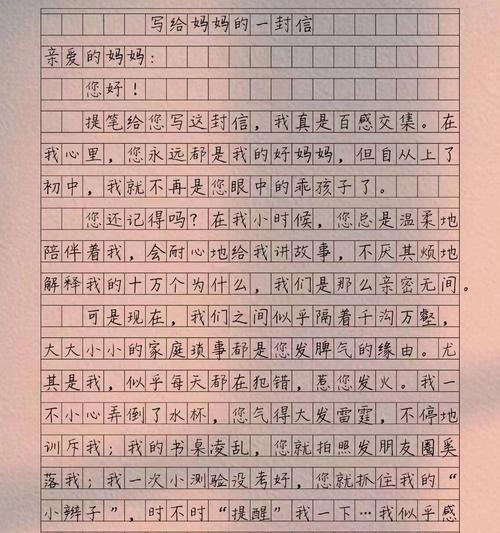 写给妈妈的一封信
亲爱的妈妈：
您好！
提笔给您写这封信，我真是百感交集。在
我心里，您永远都是我的好妈妈，但自从上了
初中，我就不再是您眼中的乖孩子了。
您还记得吗？在我小时候，您总是温柔地
陪伴着我，会耐心地给我讲故事，不厌其烦地
解释我的十万个为什么，我们是那么亲密无间。
可是现在，我们之间似乎隔着千沟万壑，
大大小小的家庭琐事都是您发脾气的缘由。尤
其是我，似乎每天都在犯错，惹您发火。我一
不小心弄倒了水杯，您气得大发雷霆，不停地
训斥我；我的书桌凌乱，您就拍照发朋友圈奚
落我；我一次小测验没考好，您就抓住我的“
小辫子”，时不时“提醒”我一下…我似乎感